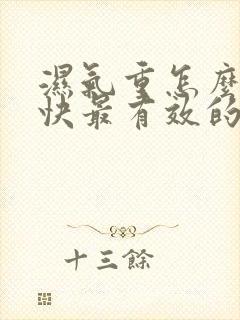 濕氣重怎麼
快最有效的
十三餘